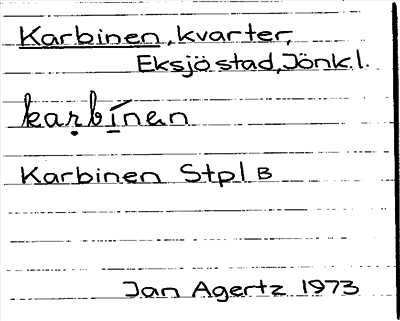 Karbinen, kvarter,
Eksjö stad, Jönk.l.
kaṛbí̠nan
Karbinen Stpl B
Jan Agertz 1973